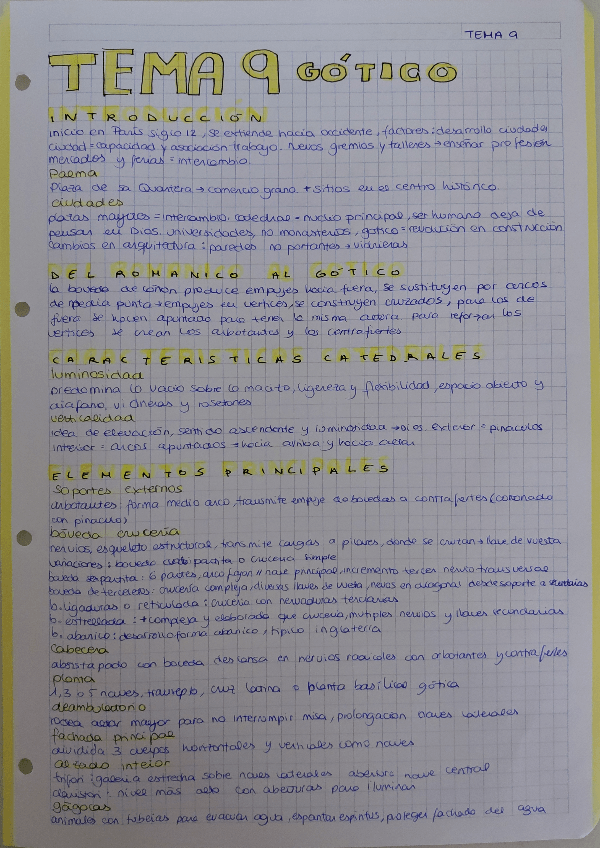 TEMA 9
TEMA 9 GÓTICO
INTRODUCCIÓN
inicio en París siglo 12, se extiende hacia occidente, factores: desarrollo ciudades
ciudad = capacidad y asociación trabajo. Nuevos gremios y talleres → enseñar profesión
mercados y ferias = intercambio.
Palma
Plaza de sa Quartera → comercio grano + sitios en el centro histórico
ciudades
plazas mayores = intercambio. catedral = nucleo principal, ser humano deja de
pensar en Dios. universidades, no monasterios, gótico = revolución en construcción
cambios en arquitectura: paredes no portantes → vidrieras
DEL ROMANICO AL GÓTICO
la boveda de cañon produce empujes hacia fuera, se sustituyen por arcos
de media punta → empujes en vertices, se construyen cruzados, para los de
fuera se hacen apuntado para tener la misma altura para reforzar los
vertices se crean los arbotantes y los contrafuertes
CARACTERISTICAS CATEDRALES
luminosidad
predomina lo vacio sobre lo macizo, ligereza y flexibilidad, espacio abierto y
diafano, vidrieras y rosetones
verticalidad
idea de elevación, sentido ascendente y luminosidad → Dios. exterior = pinaculos
interior = arcos apuntados → hacia arriba y hacia
ELEMENTOS PRINCIPALES
soportes externos
arbotantes: forma medio arco, transmite empuje bovedas a contrafertes (coronado
con pinaculo)
bóveda crucería
nervios, esqueleto estructural, transmite cargas a pilares, donde se cruzan → llave de vuelta
variaciones: boveda o cruceria simple
boveda sexpartita: 6 partes, arco fajon // nave principal, incremento tercer nervio transversal
boveda de terceletes: crucería compleja, diversas llaves de vuelta, nervios en diagonal desde soporte a
b. ligaduras o reticulada: crucería con nervaduras terciarias
b. estrellada: + compleja y elaborada que cruceria, multiples nervios y llaves secundarias
b. abanico: desarrollo forma abanico, tipico inglaterra
Cabecera
con boveda descansa en nervios radiales con arbotantes y contrafertes
planta
1, 3 o 5 naves, transepto, cruz latina o planta basilical gótica
deambulatorio
rodea altar mayor para no interrumpir misa, prolongacion naves laterales
fachada principal
dividida 3 cuerpos horizontales y verticales como naves
alzado interior
galeria estrecha sobre naves laterales abertura nave central
nivel más alto con aberturas para iluminar
gárgolas
animales con tuberias para evacuar agua, espantar espiritus, proteger fachada del agua